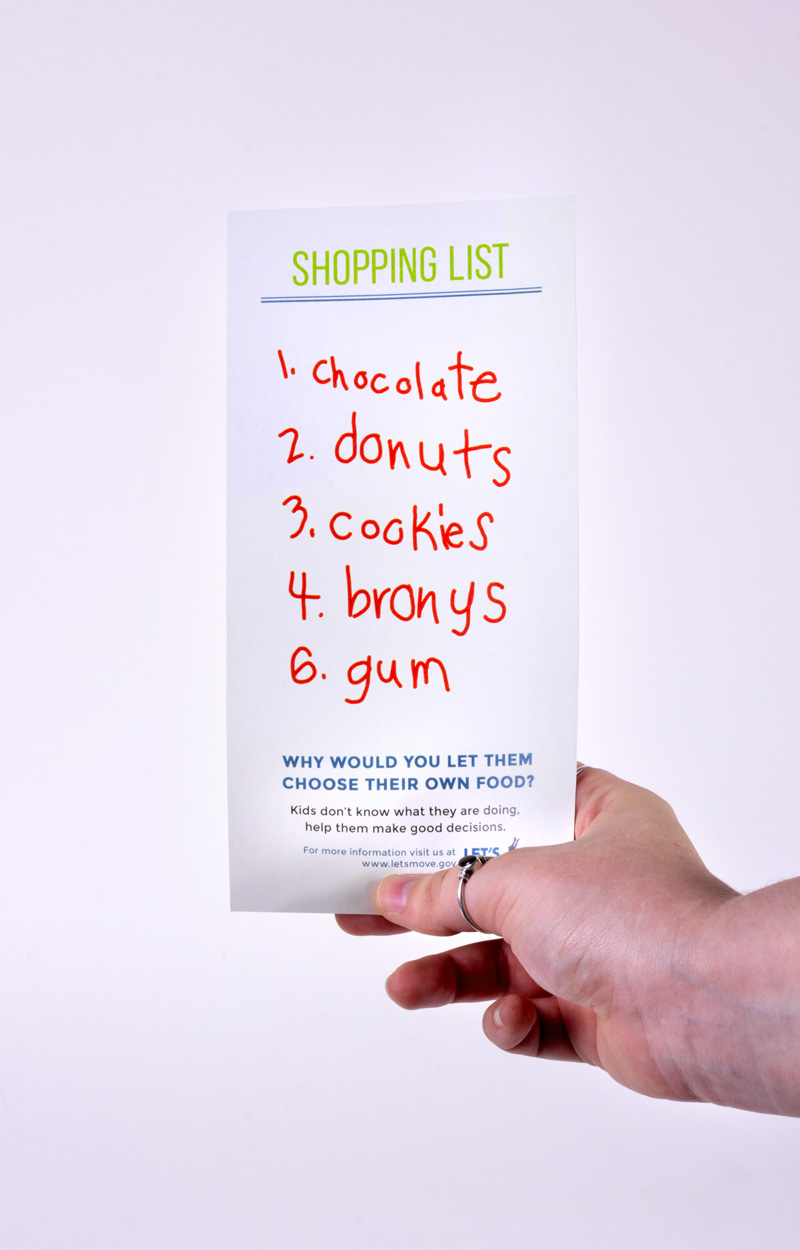 SHOPPING LIST
1. chocolate
2. donuts
3. cookies
4. bronys
6. gum
WHY WOULD YOU LET THEM
CHOOSE THEIR OWN FOOD?
Kids don't know what they are doing,
help them make good decisions.
For more information visit us at
www.letsmove.gov
LET'S